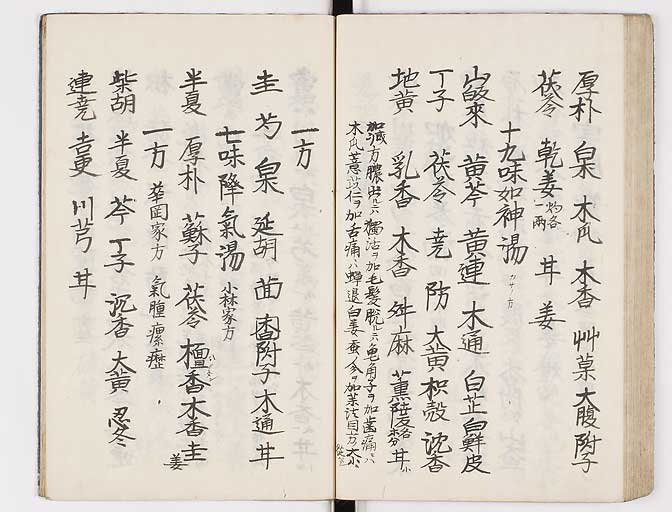 厚朴 白朮 木瓜 木香 艸菓 大腹 附子
茯苓 乾姜 灼各一両 甘 姜
十九味如神湯
山皈来 黄芩 黄連 木通 白芷 白鮮皮
丁子 茯苓 尭 防 大黄 枳殻 沈香
地黄 乳香 木香 舛麻 薫陸 甘
加減ノ方膿出ルニハ獨活ヲ加毛髪脱ルニハ亀角子ヲ加歯痛ハ
木瓜薏苡仁ヲ加舌痛ハ蝉退白姜蚕
一方
圭 芍 朮 延胡 茴 香附子 木通 甘
七味降氣湯 小林家方
半夏 厚朴 蘇子 茯苓 檀香 木香 圭 姜
一方 華岡家方 氣腫 瘰癧
柴胡 半夏 芩 丁子 沉香 大黄 忍冬
連尭 吉更 川芎 甘